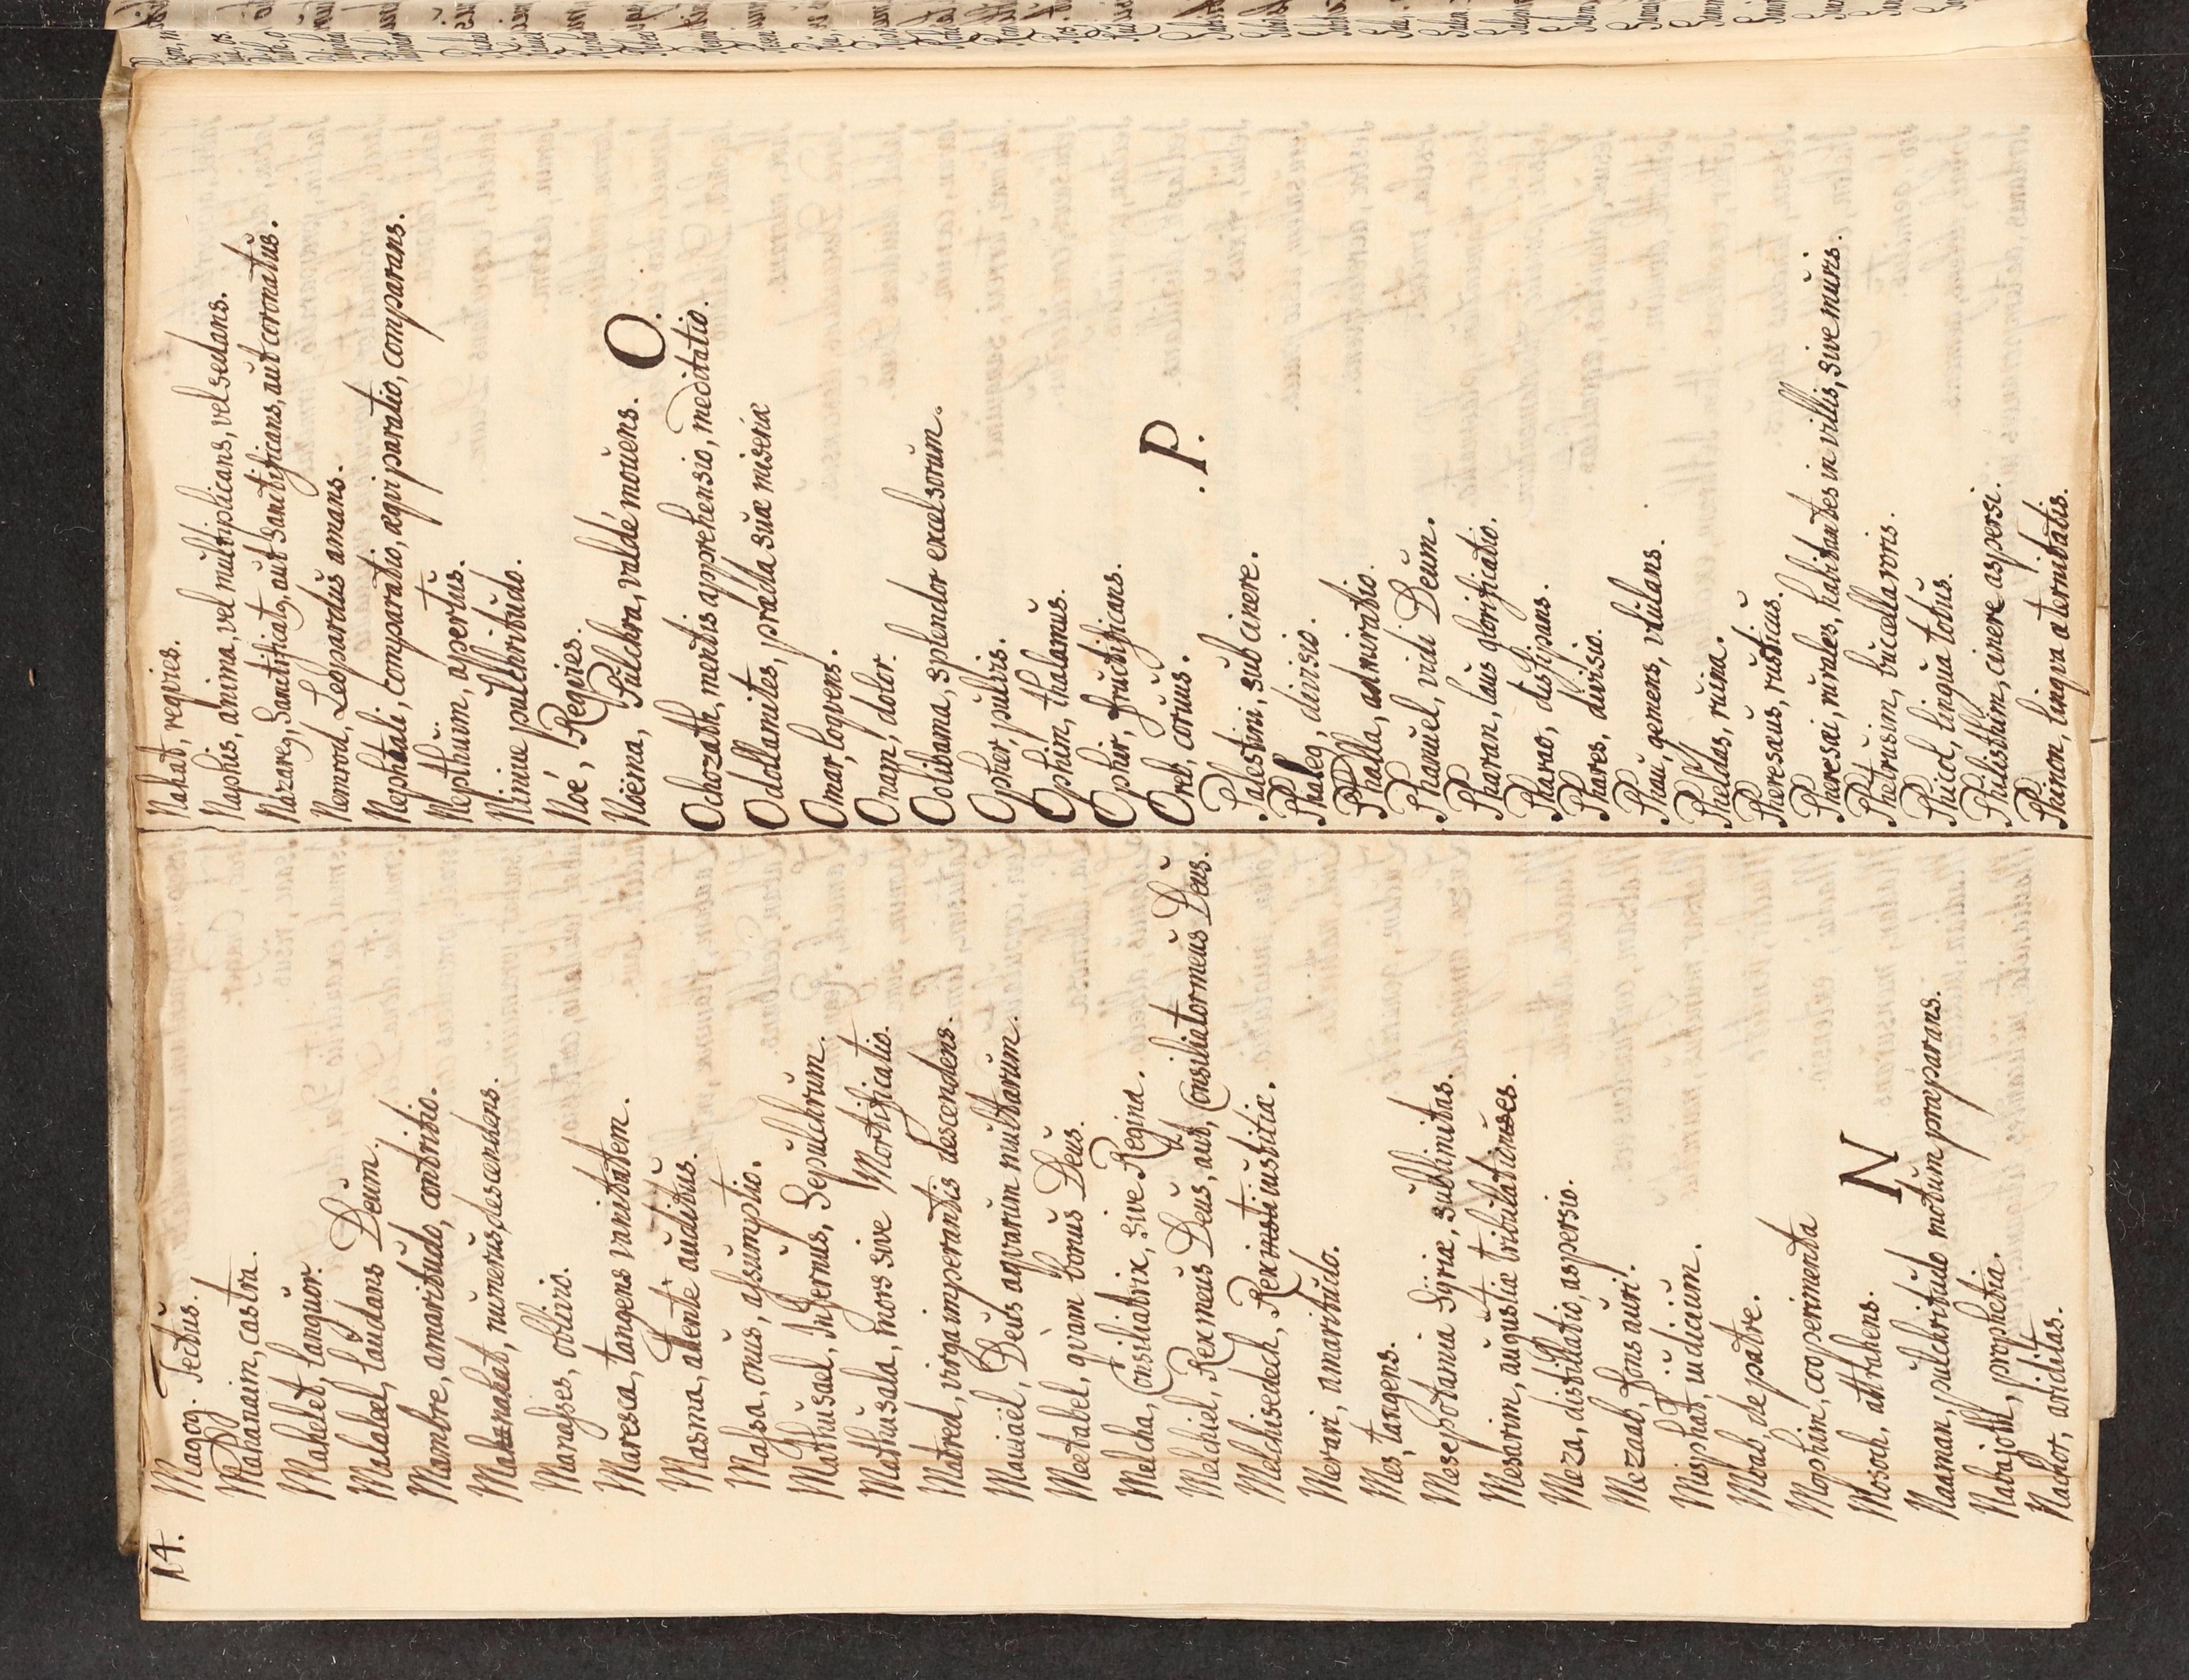 14.
Magog. Tectus.
Mahanaim, castra.
Mahelet, languor.
Malaleel, laudans Deum.
Mambre, amaritudo, contritio.
Manahat, numerus, descendens.
Manasses, oblivio.
Maresca, tangens vanitatem.
Masma, attente auditus.
Massa, onus, assumptio.
Mathusael, Infernus, Sepulchrum.
Mathusala, mors sive Mortificatio.
Matred, virga imperantis descendens.
Maviael, Deus aqvarum multarum.
Meetabel, qvàm bonus Deus.
Melcha, Consiliatrix, sive Regina.
Melchiel, Rex meus Deus, aut, Consiliator meus Deus.
Melchisedech, Rex iustitiæ.
Merari, amaritudo.
Mes, tangens.
Mesepotamia Syriæ, sublimitas.
Mesarim, augustia tribulationes.
Meza, distillatio, aspersio.
Mezaab, fons auri.
Misphat, iudicium.
Moab, de patre.
Mophim, cooperimenta
Mosoch, attrahens.
N
Naaman, pulchritudo motum præparans.
Nabajoth, prophetia.
Nachor, ariditas.
Nahat, reqvies.
Naphis, anima, vel multiplicans, vel sedans.
Nemrod, Leopardus amans.
Nephtali, comparatio, aqvi paratio, comparans.
Nepthuim, apertus.
Niniue pulchritudo.
Noé, Reqvies.
Noëma, Pulchra, valdé mouens.
O.
Ochozath, mentis apprehensio, meditatio.
Odollamites, prædla suæ miseriæ
Omar, loqvens.
Onam, dolor.
Oolibama, splendor excelsorum.
Opher, pulvis.
Ophim, thalamus.
Ophir, fructificans.
Oreb, corvus.
P.
Palestini, sub cinere.
Phaleg, divisio.
Phalla, admiratio.
Phanuel, vidi Deum.
Pharan, laus glorificatio.
Pharao, dissipans.
Phares, divisio.
Phau, gemens, ululans.
Pheldas, ruina.
Pheresæus, rusticus.
Pheresai, rurales, habitantes in villis, sive muris.
Phetrusim, bucella roris.
Phicol, lingua totus.
Philisthiim, cinere aspersi.
Phinon, lingva æternitatis.